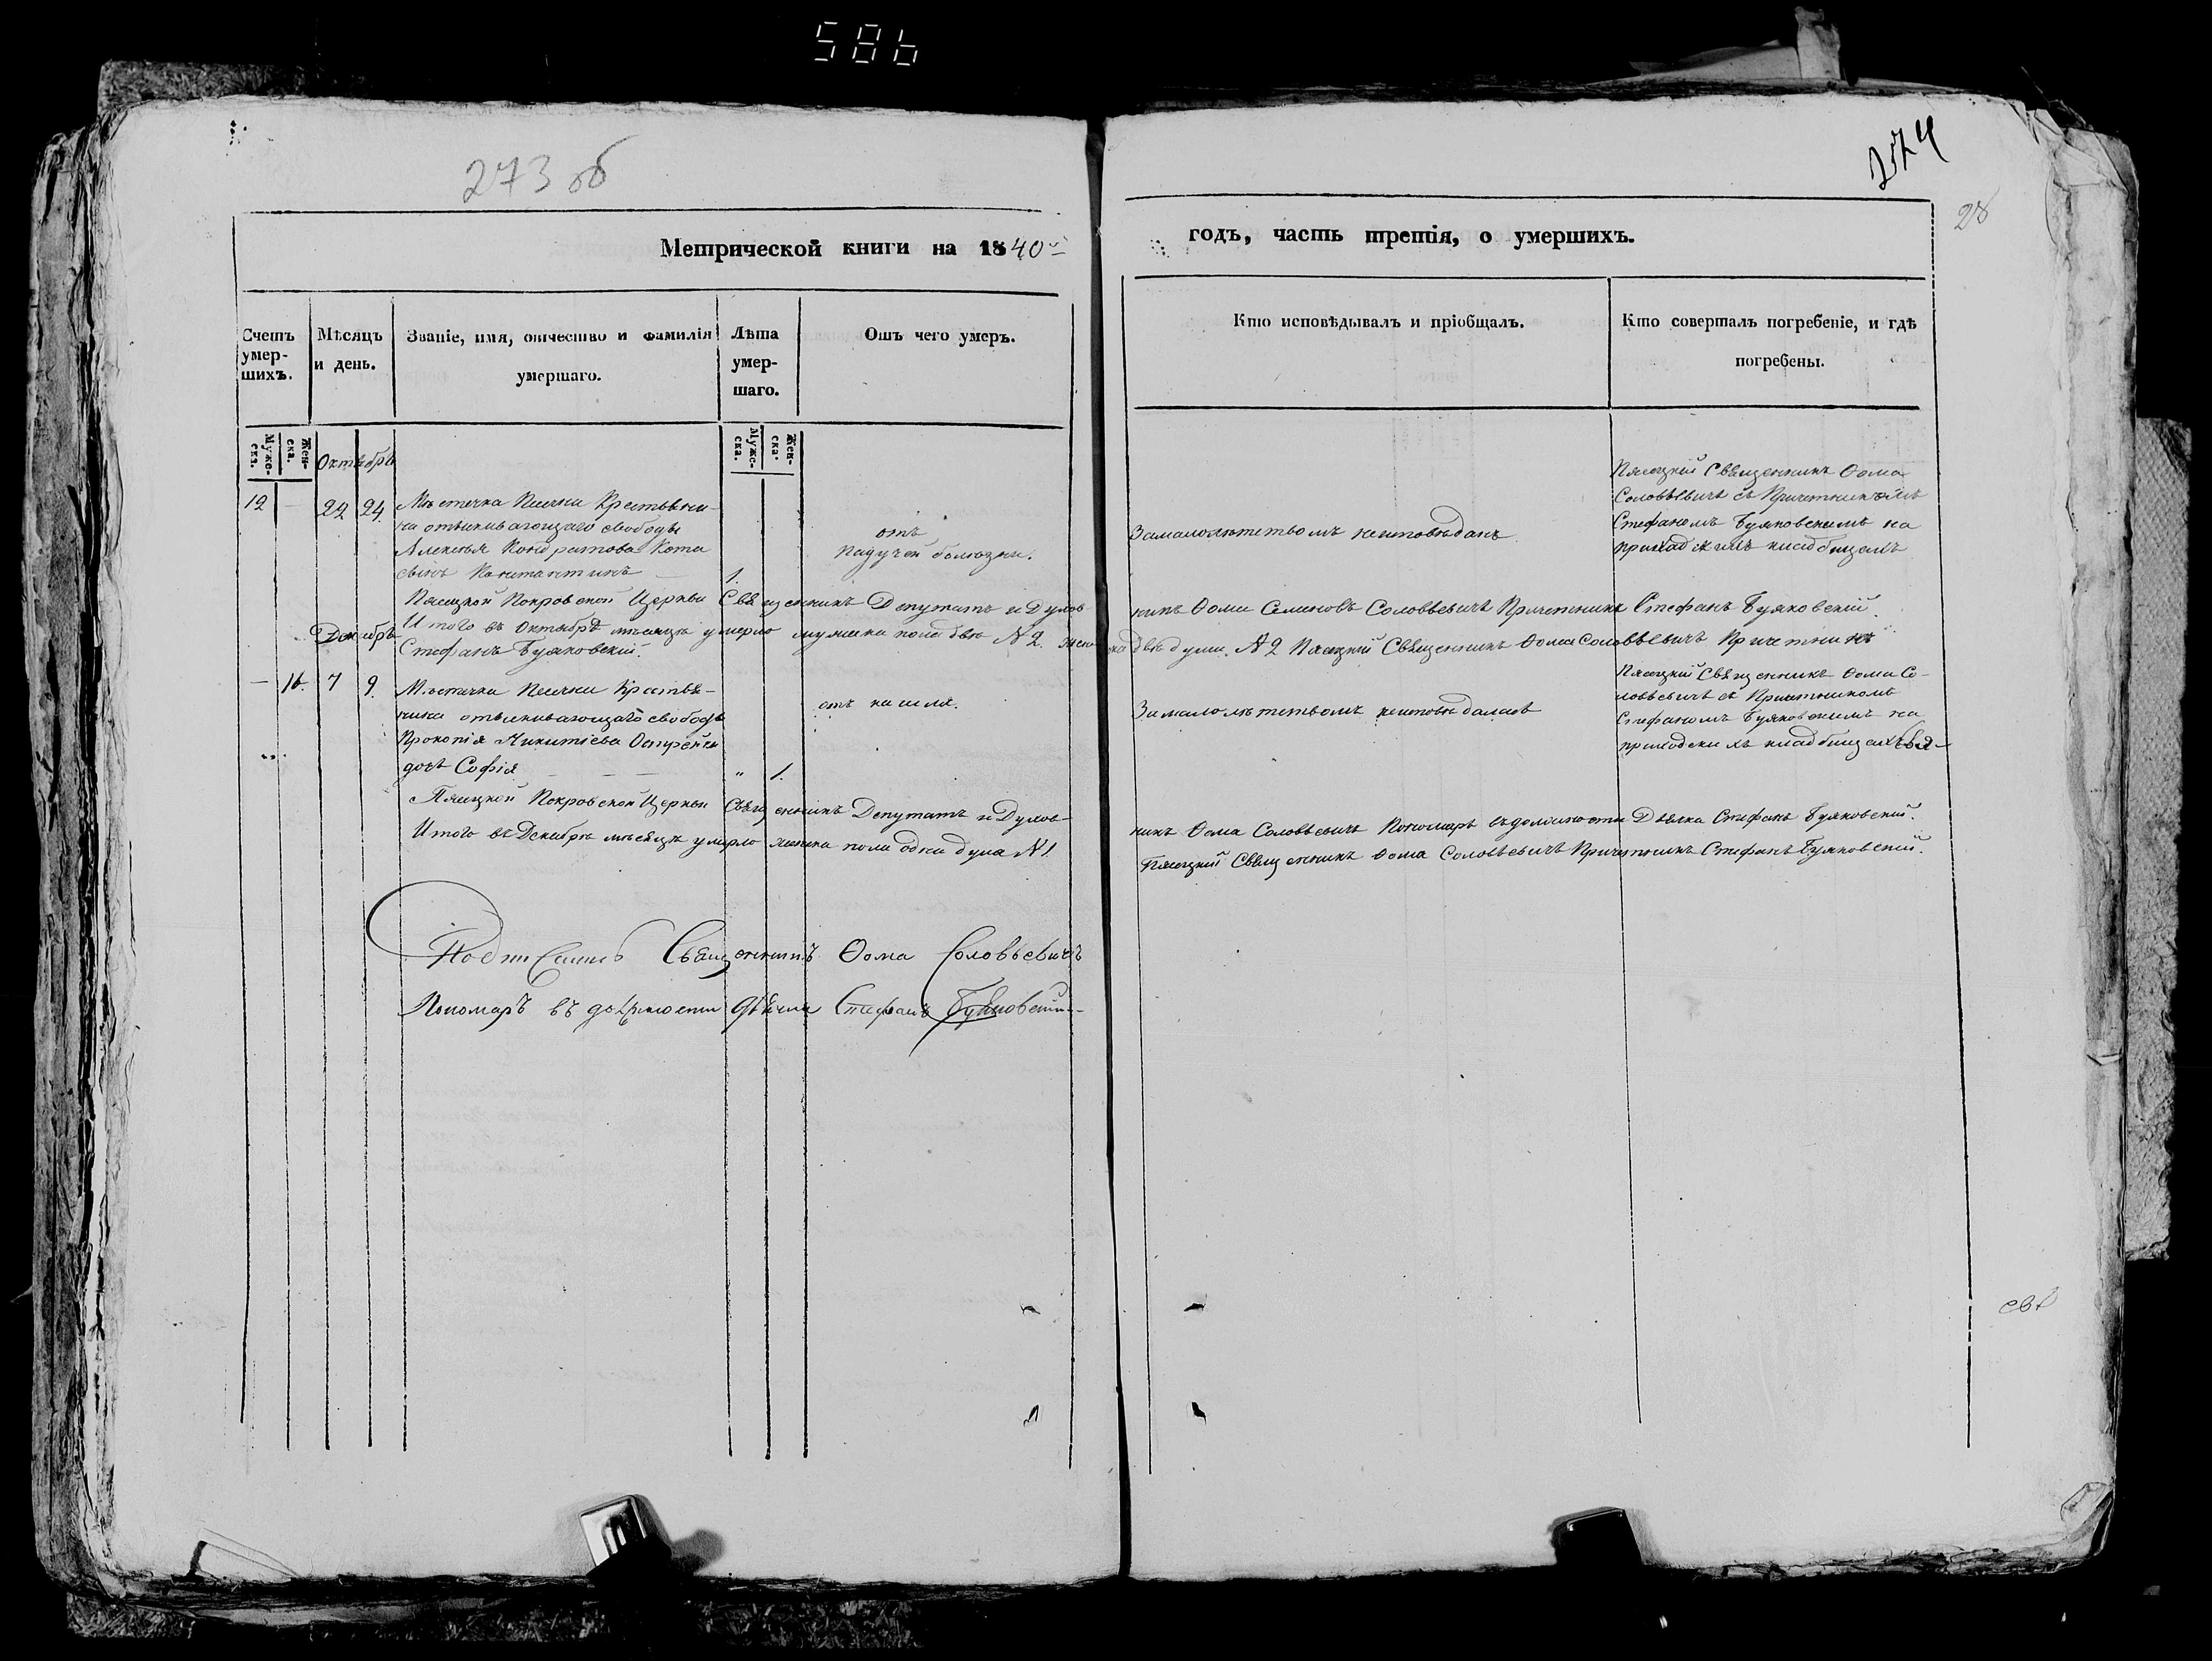 586
273 об
274
28
Метрической книги на 1840й
годъ, часть третія, о умершихъ.
Счетъ умерших.
Мѣсяцъ и день.
Званіе, имя, отчество и фамилія умершаго.
Лѣта умершаго.
Отъ чего умеръ.
Кто исповѣдывалъ и пріобщалъ.
Кто совершалъ погребеніе, и гдѣ погребены.
Мужеска. Женска.
Мужеска. Женска.
Октябрь
12 — 22 24 Мѣстечка Крестьяни-
на отыскивающаго свободы
Алексѣя Кондратова Кота
сынъ Константинъ — 1.
отъ
падучей болѣзни.
Замалолѣтствомъ неисповѣданъ
Священникъ Ѳома
Соловьевичъ съ Причетникомъ
Стефаномъ Буяковскимъ на
приходскихъ кладбищахъ
Покровской Церкви Священникъ Депутатъ и Духов-
никъ Ѳома Семиновъ Соловьевичъ Причетникъ Стефанъ Буяковскій.
Итого въ Октябрѣ мѣсяцѣ умерло мужска пола двѣ № 2. жен-
ска двѣ души. № 2 Священникъ Ѳома Соловьевичъ Причетникъ
Стефанъ Буяковскій.
Декабрь
— 16. 7 9. Мѣстечка Крестья-
нина отыскивающаго свободы
Прокопія Никитіева
дочь Софія — — — " 1.
отъ кашля.
Замалолѣтствомъ неисповѣдалась
Священникъ Ѳома Со-
ловьевичъ съ Причетникомъ
Стефаномъ Буяковскимъ на
приходскихъ кладбищахъ
Покровской Церкви Священникъ Депутатъ и Духов-
никъ Ѳома Соловьевичъ Пономарь въ должности Дьячка Стефанъ Буяковскій.
Итого въ Декабрѣ мѣсяцѣ умерло женска пола одна душа № 1.
Священникъ Ѳома Соловьевичъ Причетникъ Стефанъ Буяковскій.
Священникъ Ѳома Соловьевичъ
Пономарь въ должности дьячка Стефанъ Буяковскій